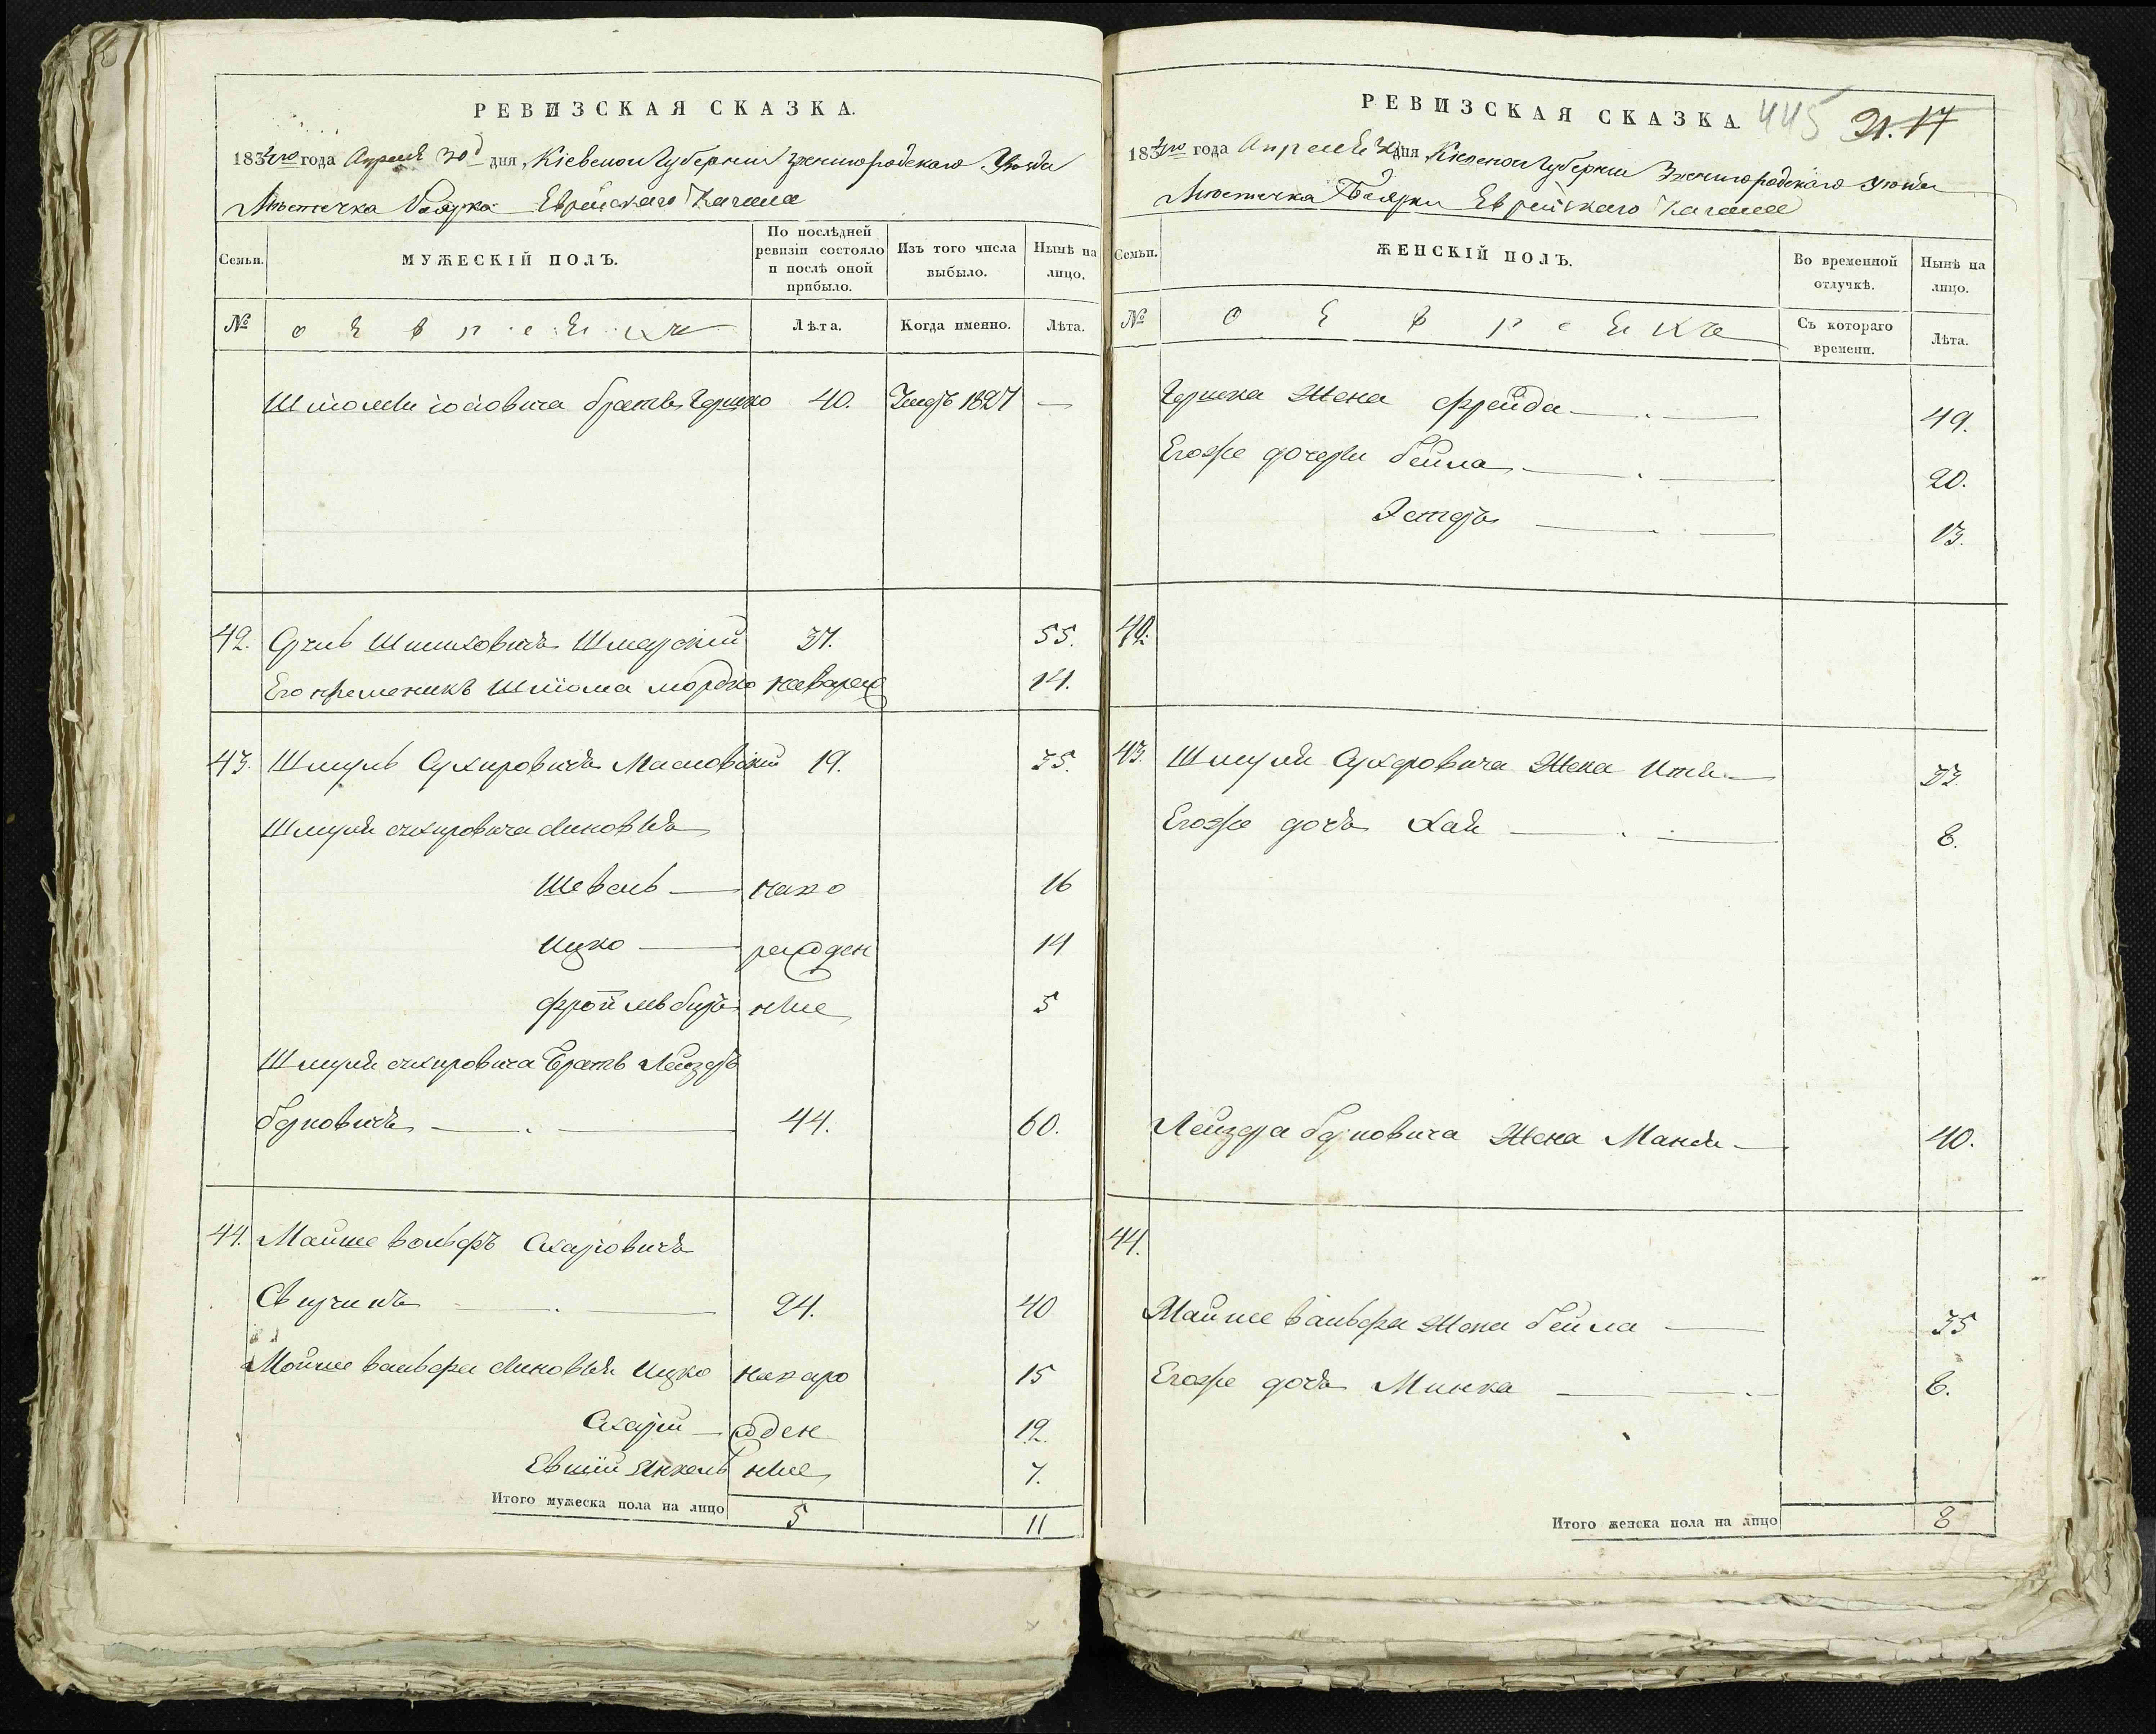 РЕВИЗСКАЯ СКАЗКА.
1834го года Апреля 30д дня, Кіевской Губерніи Звенигородскаго Уѣзда
Мѣстечка Боярка Еврейскаго Кагала
Семьи.
МУЖЕСКІЙ ПОЛЪ.
По послѣдней ревизіи состояло и послѣ оной прибыло.
Изъ того числа выбыло.
Нынѣ на лицо.
№
о Евреяхъ
Лѣта.
Когда именно.
Лѣта.
Шліомы Іосіовича братъ Гершко 40. Умеръ 1827 —
42. Шмиловичъ 37. 55.
Его племеникъ Шліома Мордко 14.
43. Шмуль Сухировичъ Масловскій 19. 35.
Шмуля сухировича сыновья
Шевель — 16
Ицко — рожден 14
Фроимъ беръ ные 5
Шмуля сухировича братъ Лейзеръ
берковичъ — 44. 60.
44. Майше вольфъ Сахаровичъ
24. 40
Мойше вольфа сыновья Ицко 15
Сахарій — ожден 12.
Евшій Янкель ные 7.
Итого мужеска пола на лицо 5 11
РЕВИЗСКАЯ СКАЗКА.
445 21. 17
1834го года Апреля 30 дня Кіевской Губерніи Звенигородскаго уѣзда
Мѣстечка Боярки Еврейскаго Кагала
Семьи.
ЖЕНСКІЙ ПОЛЪ.
Во временной отлучкѣ.
Нынѣ на лицо.
№
о Еврейкахъ
Съ котораго времени.
Лѣта.
Гершка Жена Фрейда — 49.
Егоже дочери бейла — 20.
Эстеръ — 13.
42.
43. Шмуля Сухеровича Жена Итя — 33.
Егоже дочь Хая — 8.
Лейзера берковича Жена Маня — 40.
44.
Майше вольфа Жена бейла — 35
Егоже дочь Минка — 6.
Итого женска пола на лицо 8